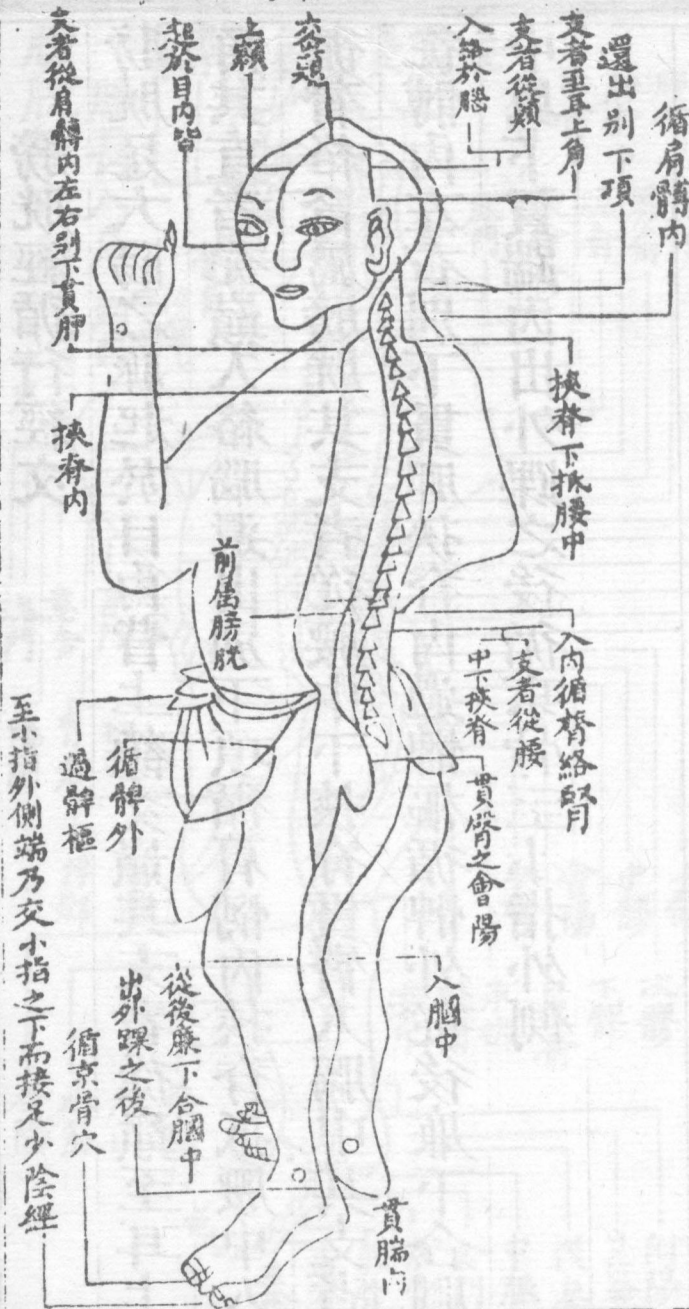 循肩髆內
還出別下項
支者至耳上角
支者從巔
入絡於腦
交巔
上額
起於目內眥
支者從肩髆內左右別下貫胛
挾脊下抵腰中
挾脊內
前屬膀胱
入內循膂絡腎
支者從腰
中下挾脊
貫臀之會陽
循髀外
過髀樞
入膕中
從後廉下合膕中
出外踝之後
循京骨穴
至小指外側端乃交小指之下而接足少陰經
貫腨內